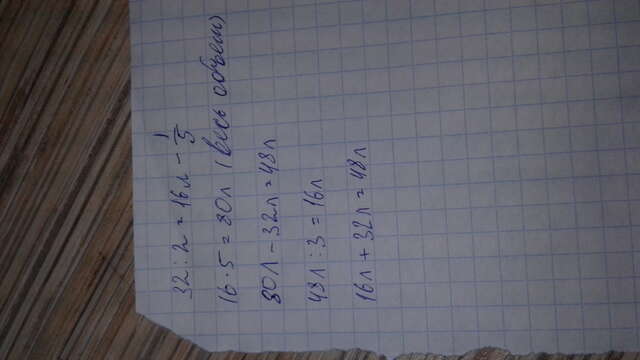 32 : 2 = 16л - 1/5
16 · 5 = 80л (весь объем)
80л - 32л = 48л
48л : 3 = 16л
16л + 32л = 48л